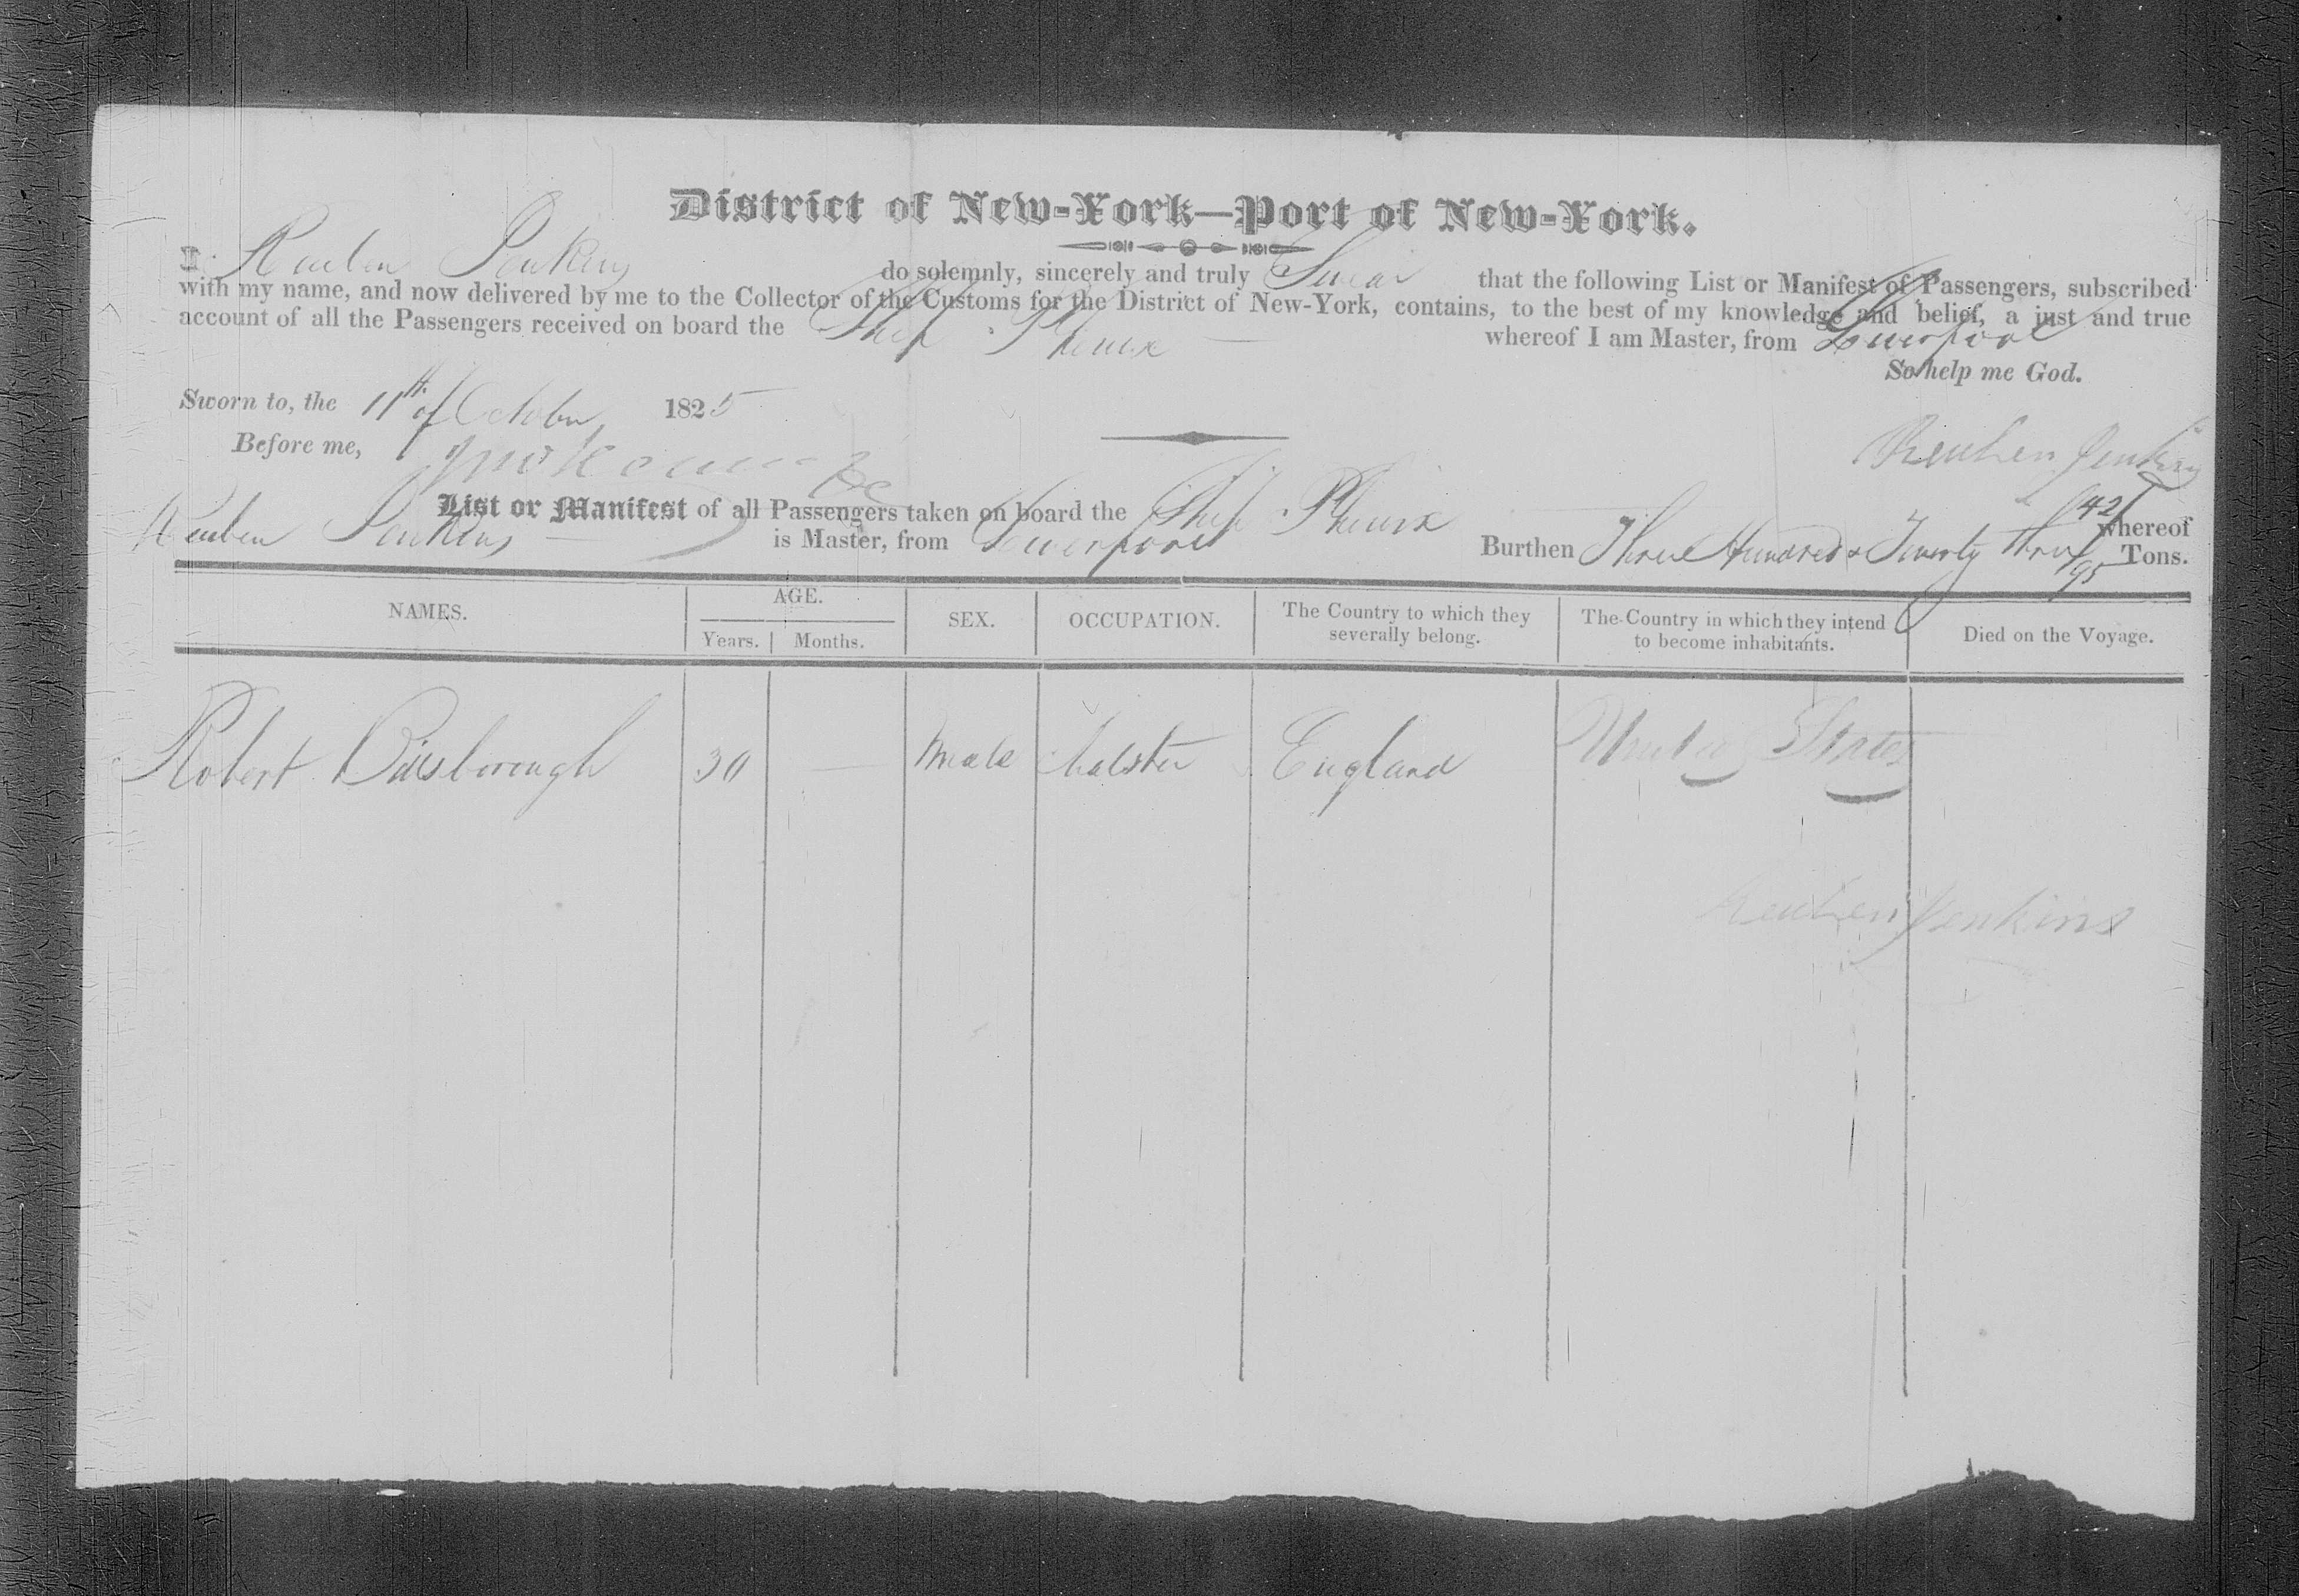 District of New-York—Port of New-York.
I, Reuben Jenkins do solemnly, sincerely and truly Swear that the following List or Manifest of Passengers, subscribed
with my name, and now delivered by me to the Collector of the Customs for the District of New-York, contains, to the best of my knowledge and belief, a just and true
account of all the Passengers received on board the Ship Phenix whereof I am Master, from Liverpool
So help me God.
Sworn to, the 11th of October 1825
Before me,
Reuben Jenkins
List or Manifest of all Passengers taken on board the Ship Phenix whereof
Reuben Jenkins is Master, from Liverpool Burthen Three Hundred & Twenty three 42/95 Tons.
NAMES. AGE. SEX. OCCUPATION. The Country to which they severally belong. The Country in which they intend to become inhabitants. Died on the Voyage.
Years. Months.
Robert 30 — Male Malster England United States
Reuben Jenkins